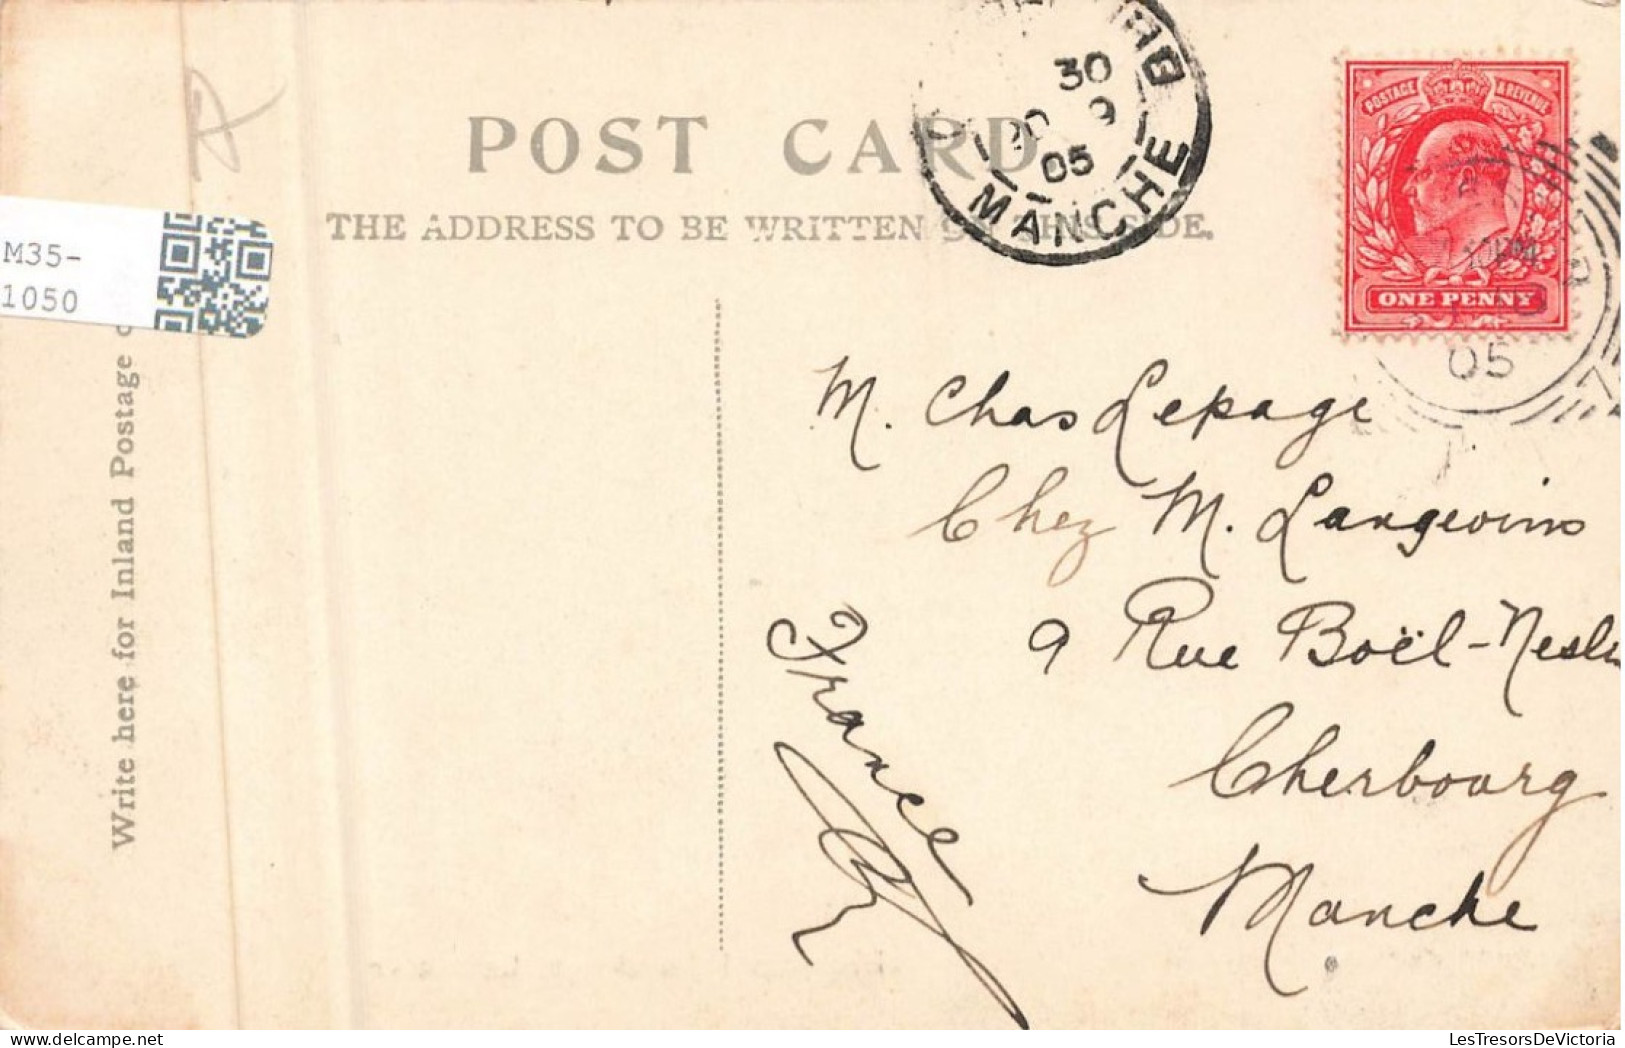 POST CARD
THE ADDRESS TO BE WRITTEN
30
05
MANCHE
POSTAGE & REVENUE
ONE PENNY
05
M35-
1050
Write here for Inland Postage
M. Chas Lepage
Chez M. Langevin
9 Rue Boël-Nesl
Cherbourg
Manche
France
LesTresorsDeVictoria